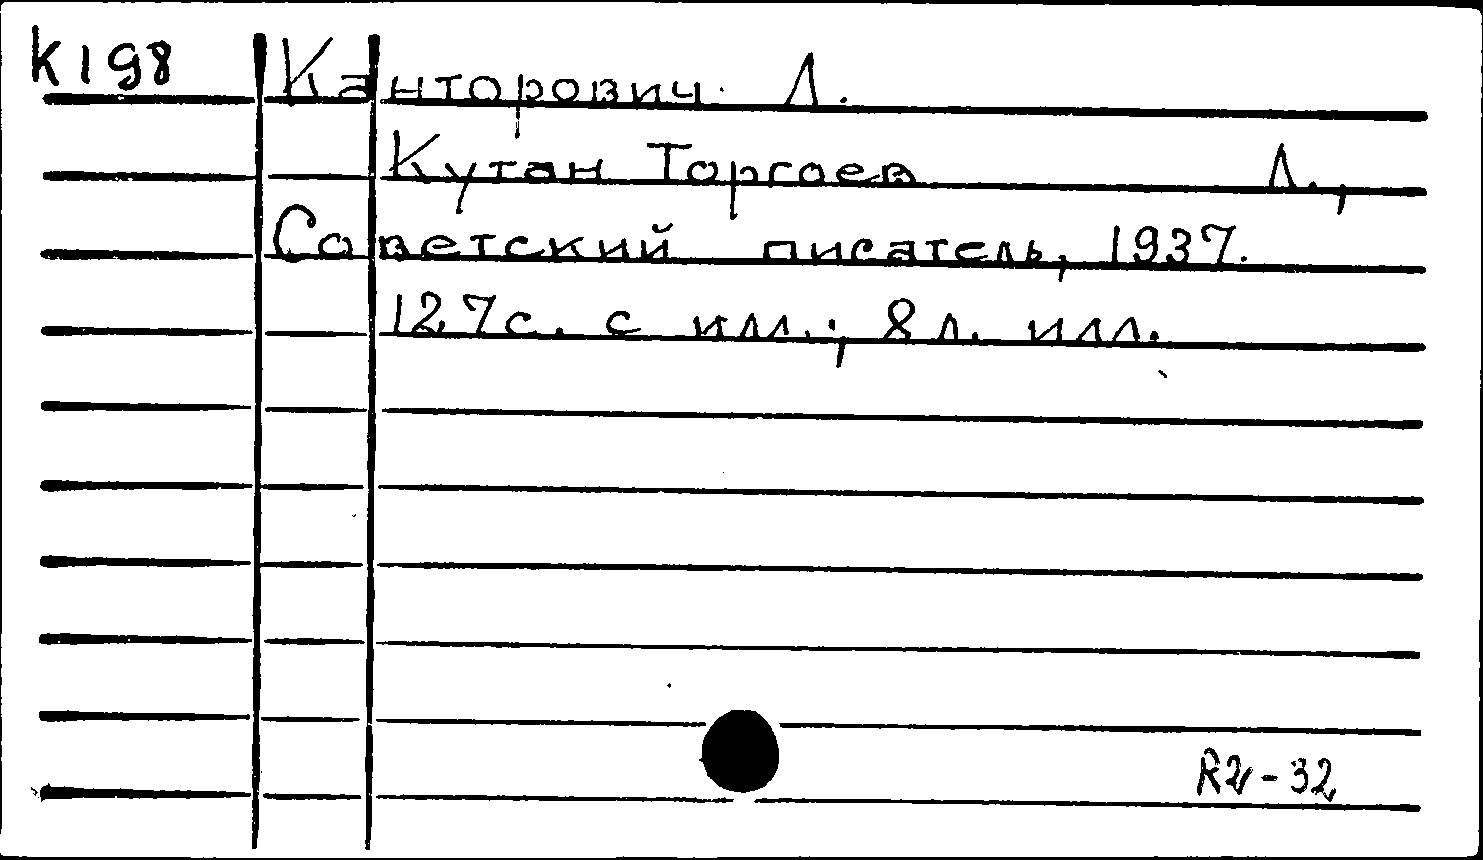 К198 Канторович. Л.
Кутан Торгоев Л.,
Советский писатель, 1937.
127с. с илл.; 8 л. илл.
R2-32